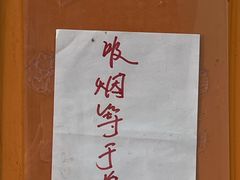 吸烟等于